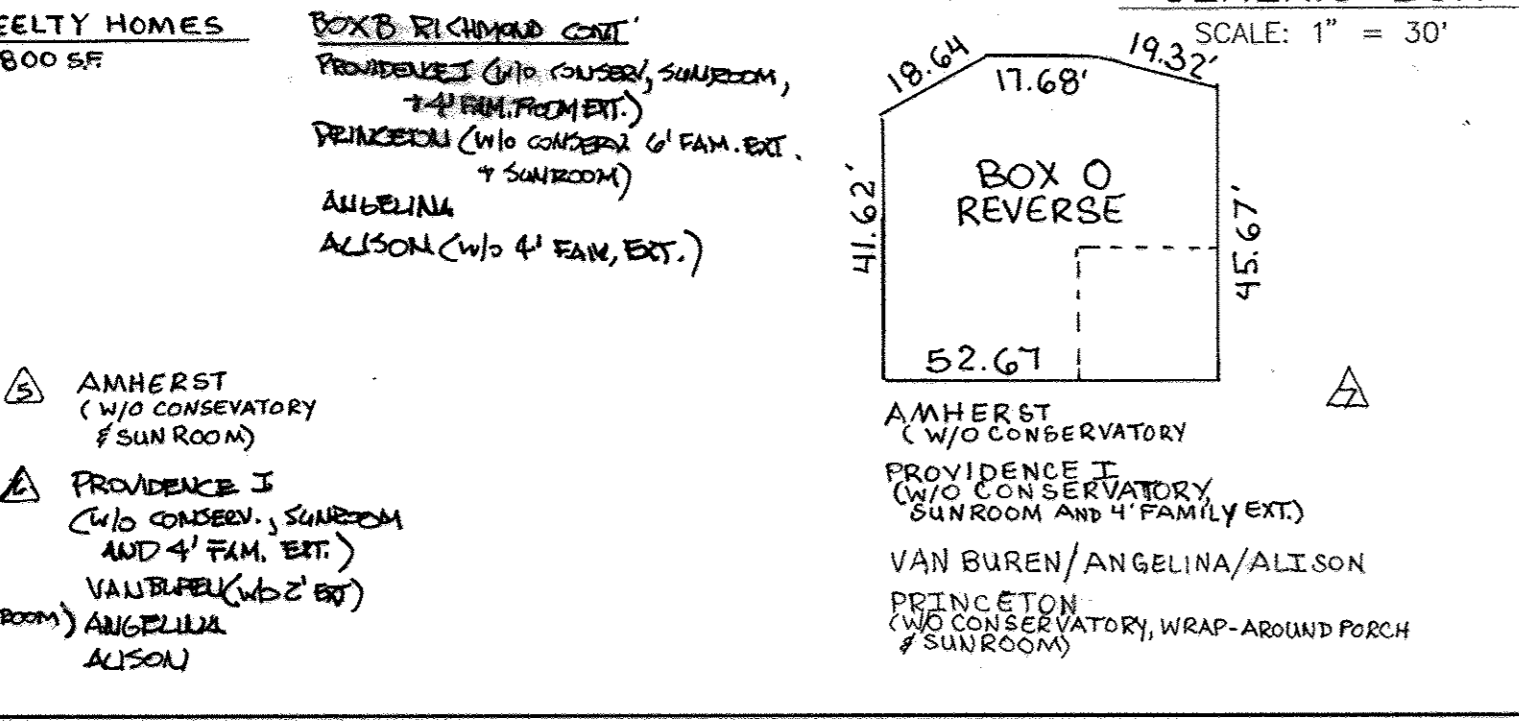 HOMES
800 S.F.
BOX B RICHMOND CONT'
PROVIDENCE I (W/O CONSERV, SUNROOM,
+ 4' FAM. ROOM EXT.)
PRINCETON (W/O CONSERV 6' FAM. EXT.
& SUNROOM)
ANGELINA
ALISON (W/O 4' FAM, EXT.)
5 AMHERST
(W/O CONSEVATORY
& SUN ROOM)
PROVIDENCE I
(W/O CONSERV., SUNROOM
AND 4' FAM. EXT.)
VAN BUREN (W/O 2' EXT)
ROOM) ANGELINA
ALISON
SCALE: 1" = 30'
18.64
17.68'
19.32'
41.62'
BOX O
REVERSE
45.67'
52.67
7
AMHERST
(W/O CONSERVATORY
PROVIDENCE I
(W/O CONSERVATORY,
SUNROOM AND 4' FAMILY EXT.)
VAN BUREN/ANGELINA/ALISON
PRINCETON
(W/O CONSERVATORY, WRAP-AROUND PORCH
& SUNROOM)